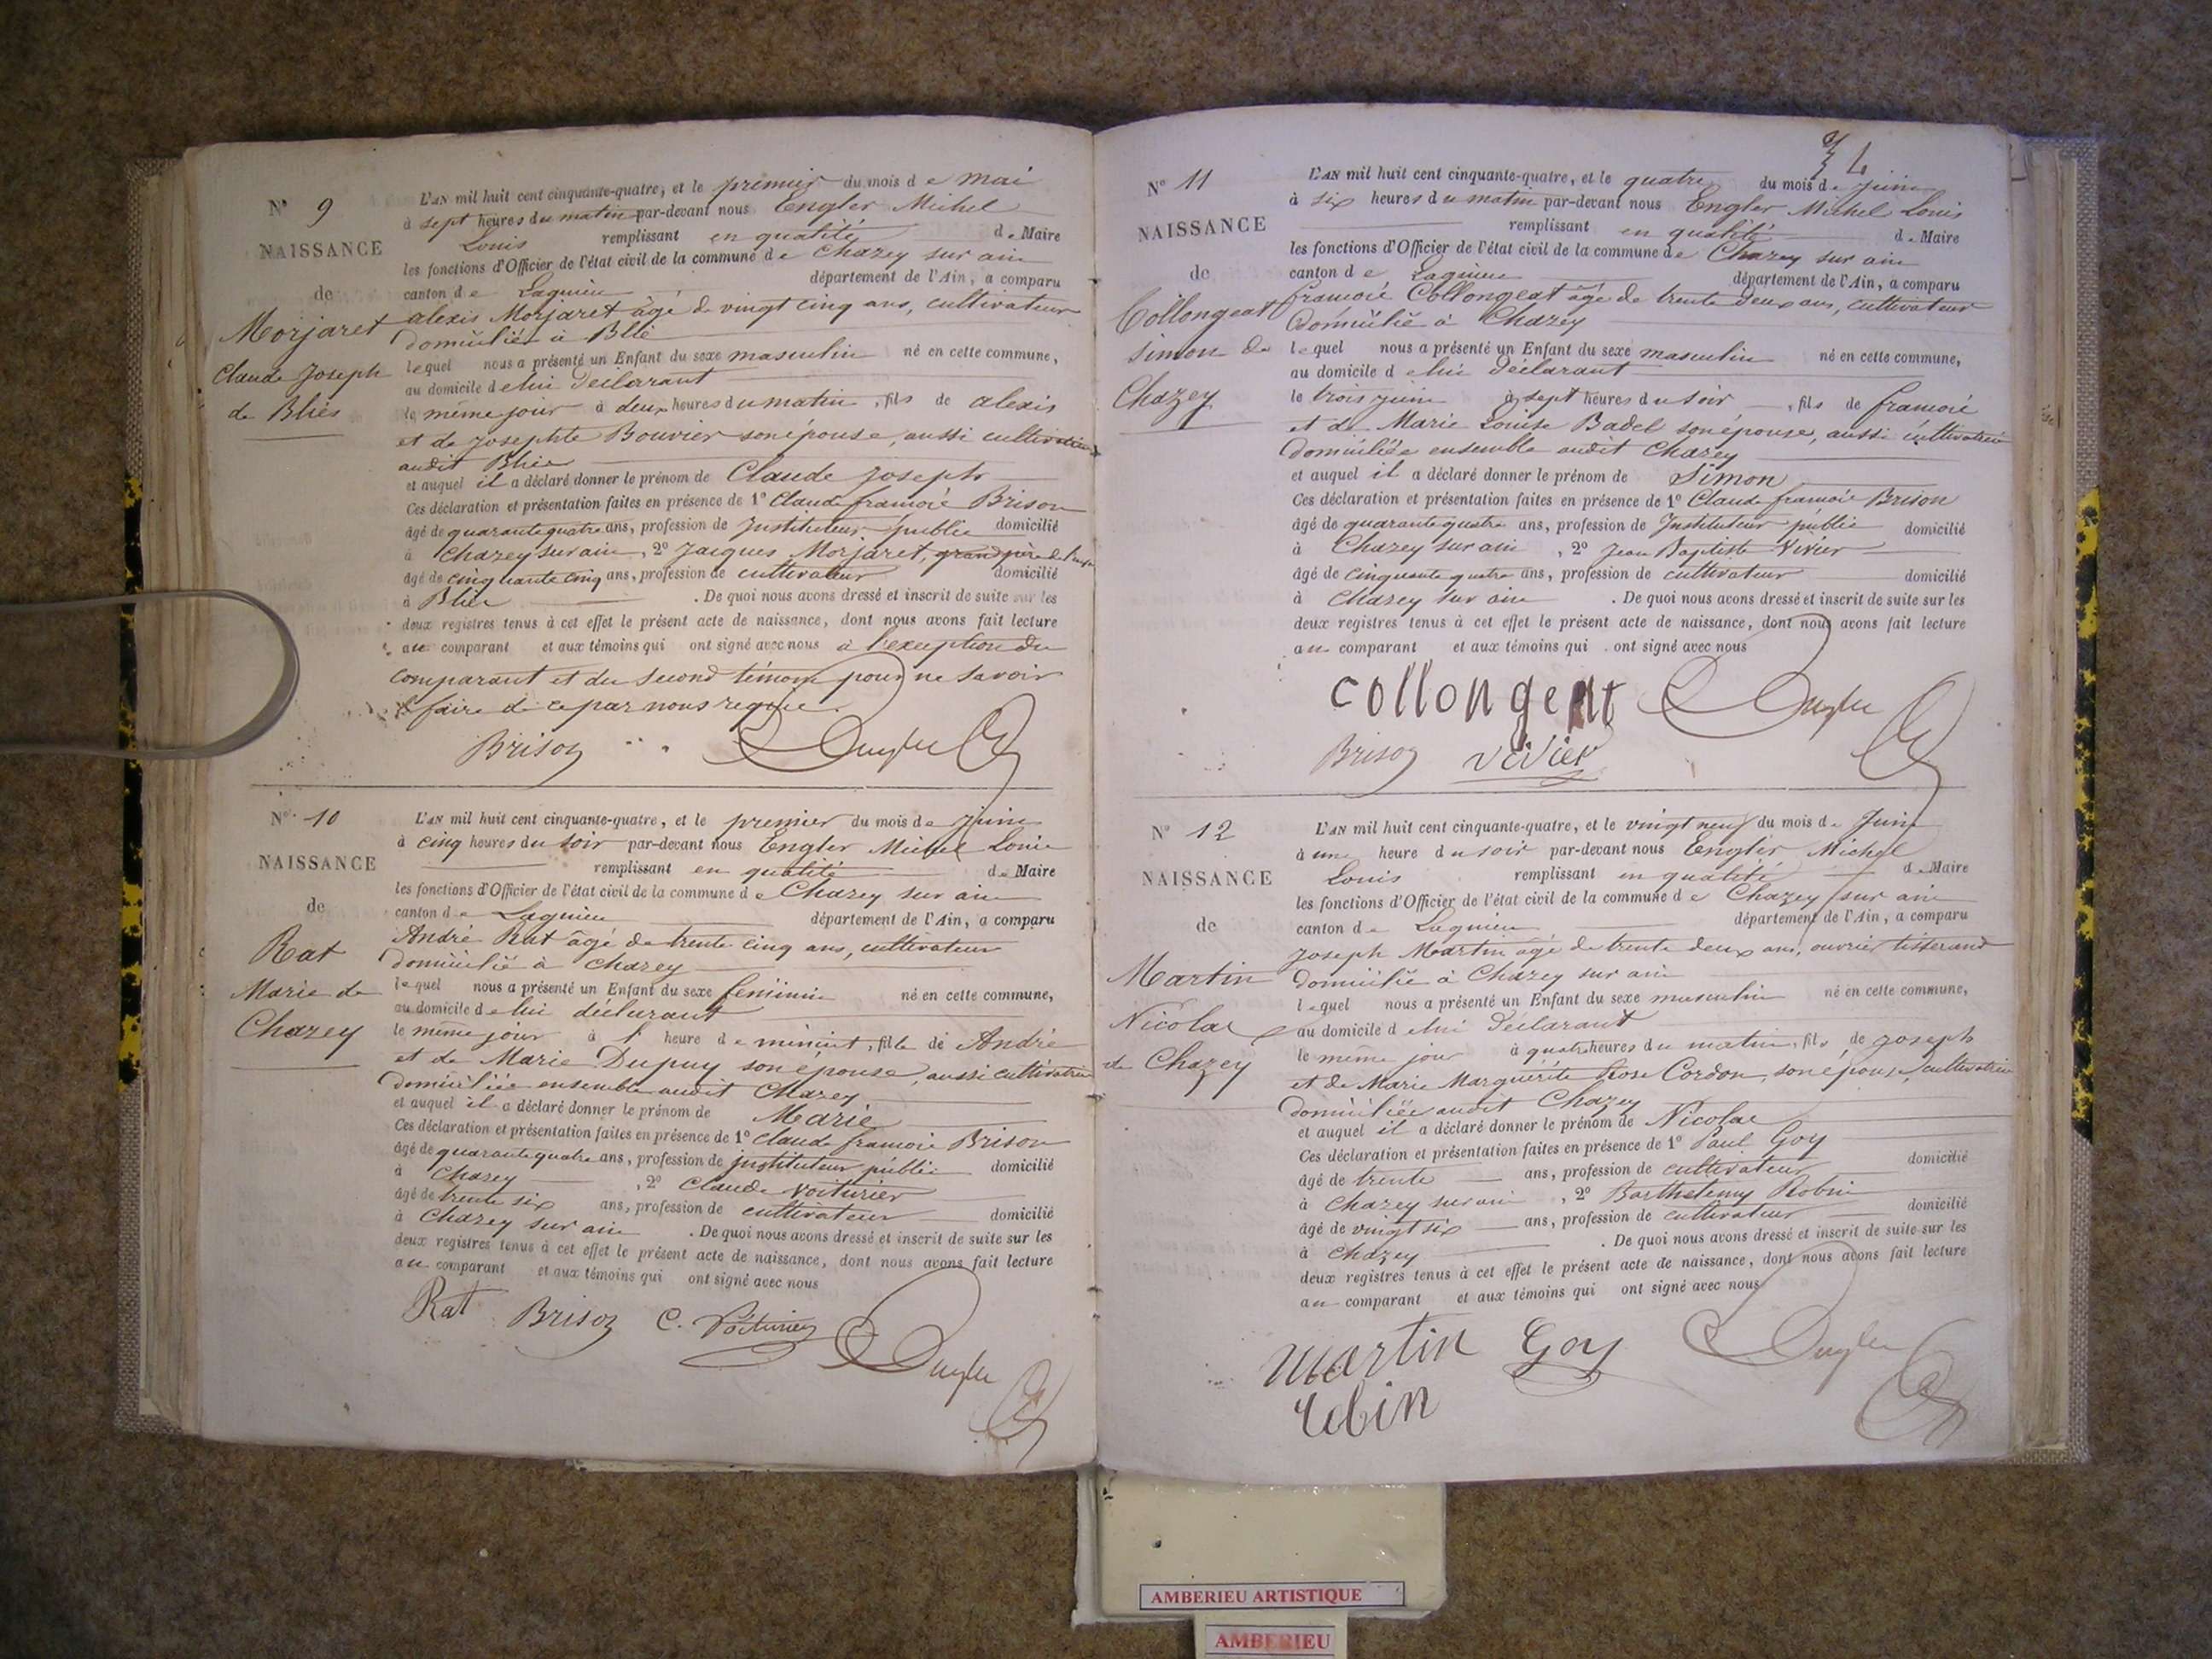 N° 9
NAISSANCE
de
Morjaret
Claude Joseph
de Bliés
L'AN mil huit cent cinquante-quatre, et le premier du mois de mai
à sept heures du matin par-devant nous Engler Michel
Louis remplissant en qualité de Maire
les fonctions d'Officier de l'état civil de la commune de Chazey sur ain
canton de Lagnieu département de l'Ain, a comparu
alexis Morjaret âgé de vingt cinq ans, cultivateur
domicilié à Blie
lequel nous a présenté un Enfant du sexe masculin né en cette commune,
au domicile de lui déclarant
le même jour à deux heures du matin, fils de alexis
et de Josephte Bouvier son épouse, aussi cultivatrice
audit Blie
et auquel il a déclaré donner le prénom de Claude Joseph
Ces déclaration et présentation faites en présence de 1° Claude françois Brison
âgé de quarante quatre ans, profession de Instituteur public domicilié
à Chazey sur ain, 2° Jacques Morjaret, grand père de l'enfant
âgé de cinquante cinq ans, profession de cultivateur domicilié
à Blie . De quoi nous avons dressé et inscrit de suite sur les
deux registres tenus à cet effet le présent acte de naissance, dont nous avons fait lecture
au comparant et aux témoins qui ont signé avec nous à l'exception du
comparant et du second témoin pour ne savoir
le faire de ce par nous requis.
Brison Engler
N° 10
NAISSANCE
de
Rat
Marie de
Chazey
L'AN mil huit cent cinquante-quatre, et le premier du mois de juin
à cinq heures du soir par-devant nous Engler Michel Louis
remplissant en qualité de Maire
les fonctions d'Officier de l'état civil de la commune de Chazey sur ain
canton de Lagnieu département de l'Ain, a comparu
André Rat âgé de trente cinq ans, cultivateur
domicilié à Chazey
lequel nous a présenté un Enfant du sexe feminin né en cette commune,
au domicile de lui déclarant
le même jour à 1 heure de minuit, fille de André
et de Marie Dupuy son épouse, aussi cultivatrice
domiciliée ensemble audit Chazey
et auquel il a déclaré donner le prénom de Marie
Ces déclaration et présentation faites en présence de 1° Claude françois Brison
âgé de quarante quatre ans, profession de instituteur public domicilié
à Chazey , 2° Claude Voiturier
âgé de trente six ans, profession de cultivateur domicilié
à Chazey sur ain . De quoi nous avons dressé et inscrit de suite sur les
deux registres tenus à cet effet le présent acte de naissance, dont nous avons fait lecture
au comparant et aux témoins qui ont signé avec nous
Rat Brison C. Voiturier Engler
N° 11
NAISSANCE
de
Collongeat
Simon de
Chazey
L'AN mil huit cent cinquante-quatre, et le quatre du mois de juin
à six heures du matin par-devant nous Engler Michel Louis
remplissant en qualité de Maire
les fonctions d'Officier de l'état civil de la commune de Chazey sur ain
canton de Lagnieu département de l'Ain, a comparu
françois Collongeat âgé de trente deux ans, cultivateur
Domicilié à Chazey
lequel nous a présenté un Enfant du sexe masculin né en cette commune,
au domicile de lui déclarant
le trois juin à sept heures du soir, fils de françois
et de Marie Louise Badel son épouse, aussi cultivatrice
domiciliée ensemble audit Chazey
et auquel il a déclaré donner le prénom de Simon
Ces déclaration et présentation faites en présence de 1° Claude françois Brison
âgé de quarante quatre ans, profession de Instituteur public domicilié
à Chazey sur ain , 2° Jean Baptiste Vivier
âgé de cinquante quatre ans, profession de cultivateur domicilié
à Chazey sur ain . De quoi nous avons dressé et inscrit de suite sur les
deux registres tenus à cet effet le présent acte de naissance, dont nous avons fait lecture
au comparant et aux témoins qui ont signé avec nous
collongeat Engler
Brison vivier
N° 12
NAISSANCE
de
Martin
Nicolas
de Chazey
L'AN mil huit cent cinquante-quatre, et le vingt neuf du mois de Juin
à une heure du soir par-devant nous Engler Michel
Louis remplissant en qualité de Maire
les fonctions d'Officier de l'état civil de la commune de Chazey sur ain
canton de Lagnieu département de l'Ain, a comparu
Joseph Martin âgé de trente deux ans, ouvrier tisserand
domicilié à Chazey sur ain
lequel nous a présenté un Enfant du sexe masculin né en cette commune,
au domicile de lui déclarant
le même jour à quatre heures du matin, fils de Joseph
et de Marie Marguerite Rose Cordon, son épouse, cultivatrice
domiciliée audit Chazey
et auquel il a déclaré donner le prénom de Nicolas
Ces déclaration et présentation faites en présence de 1° Paul Goy
âgé de trente ans, profession de cultivateur domicilié
à Chazey sur ain , 2° Barthelemy Robin
âgé de vingt six ans, profession de cultivateur domicilié
à Chazey . De quoi nous avons dressé et inscrit de suite sur les
deux registres tenus à cet effet le présent acte de naissance, dont nous avons fait lecture
au comparant et aux témoins qui ont signé avec nous
Martin Goy Engler
AMBERIEU ARTISTIQUE
AMBERIEU